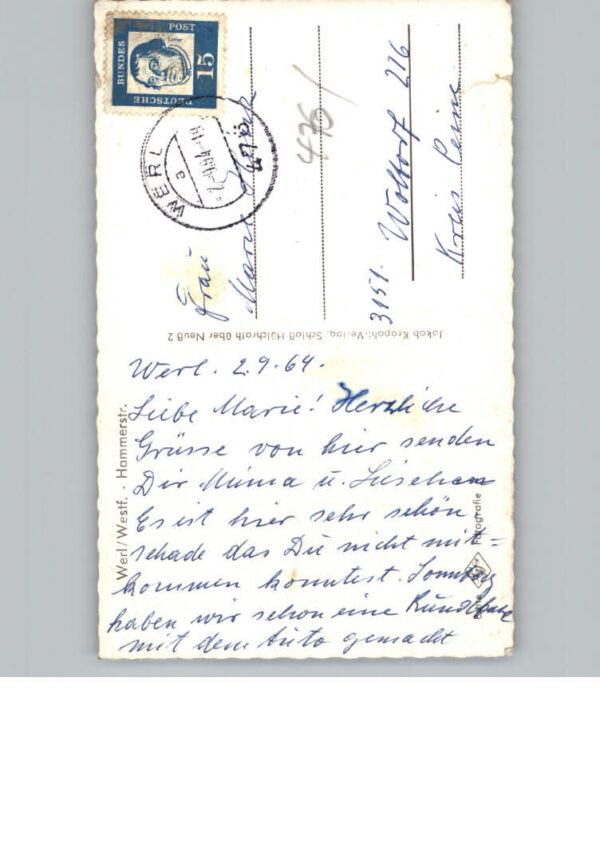 DEUTSCHE
BUNDES
POST
15
Luther
WERL
a
Frau
Marie
3151. Woltorf 216
Kreis Peine
476/
Jakob Kropohl-Verlag, Schloß Hülchrath über Neuß 2
Werl/Westf. · Hammerstr.
Fotografie
Werl. 2.9.64.
Liebe Marie! Herzliche
Grüsse von hier senden
Dir Minna u. Lieschen
Es ist hier sehr schön
schade das Du nicht mit=
kommen konntest. Sonntag
haben wir schon eine Rundfahrt
mit dem Auto gemacht